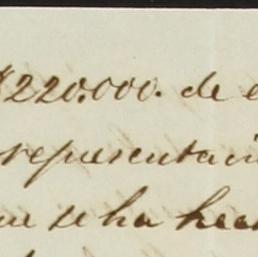 $220.000. de e
representaci
ue se ha hech